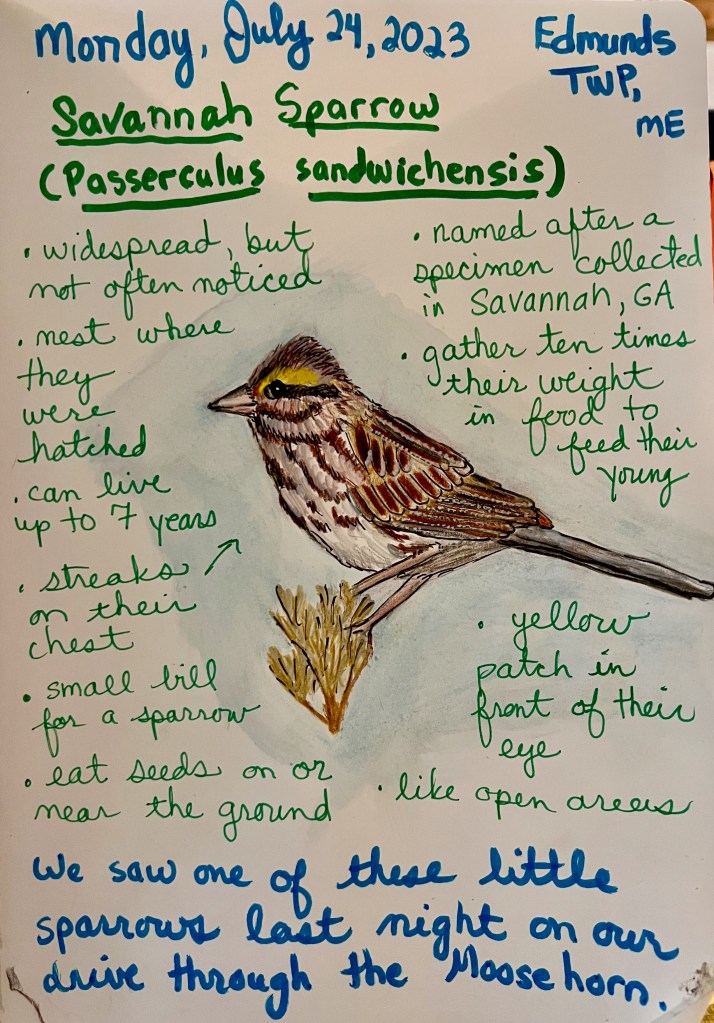 Monday, July 24, 2023
Edmunds
TWP,
ME
Savannah Sparrow
(Passerculus sandwichensis)
• widespread, but
not often noticed
• nest where
they
were
hatched
• can live
up to 7 years
• streaks
on their
chest
• small bill
for a sparrow
• eat seeds on or
near the ground
• named after a
specimen collected
in Savannah, GA
• gather ten times
their weight
in food to
feed their
young
• yellow
patch in
front of their
eye
• like open areas
We saw one of these little
sparrows last night on our
drive through the Moosehorn.